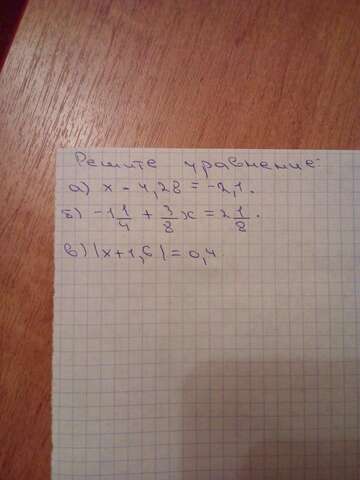 Решите уравнение:
а) x - 4,28 = -2,1.
б) -1 1/4 + 3/8 x = 2 1/8.
в) |x+1,6| = 0,4.